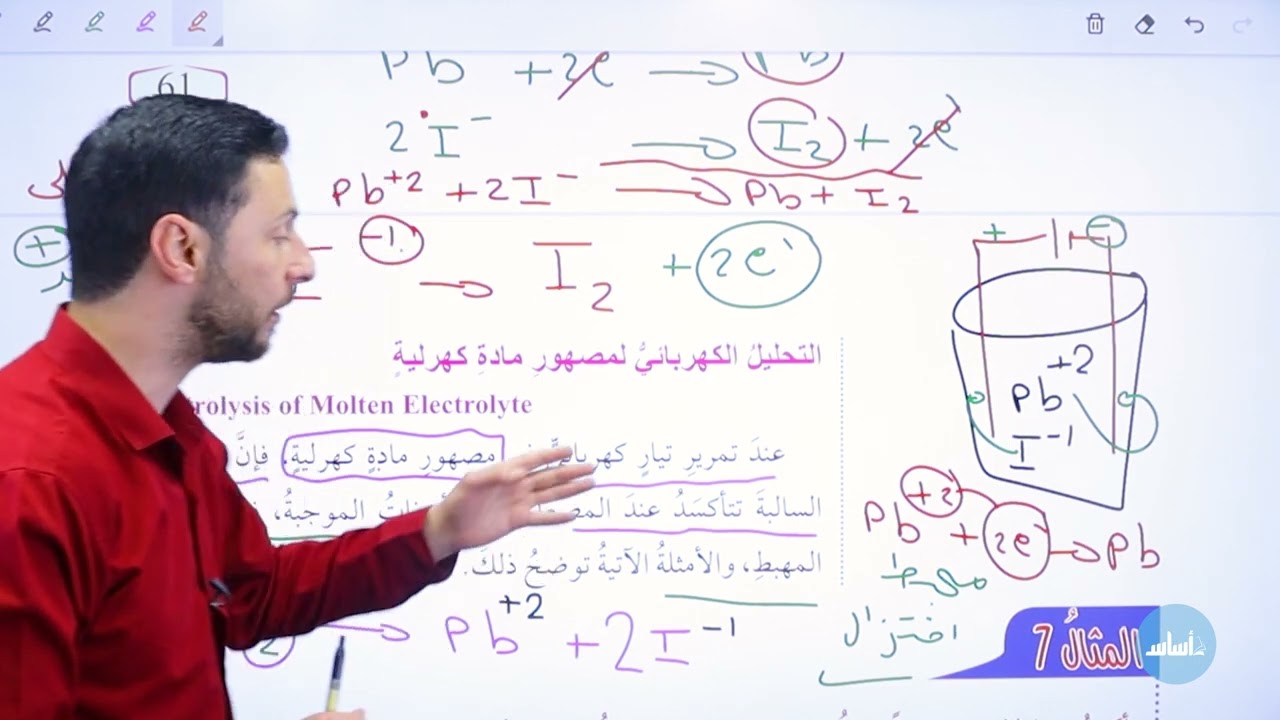 61
Pb + 2e → Pb
2I⁻ → I₂ + 2e
Pb⁺² + 2I⁻ → Pb + I₂
+
-1 → I₂ + 2e⁻
+ -
التحليلُ الكهربائيُّ لمصهورِ مادةٍ كهرليةٍ
rolysis of Molten Electrolyte
عندَ تمريرِ تيارٍ كهربائيٍّ في مصهورِ مادةٍ كهرليةٍ، فإنَّ
السالبةَ تتأكسَدُ عندَ الموجبةُ،
المهبطِ، والأمثلةُ الآتيةُ توضحُ ذلكَ.
Pb⁺²
I⁻¹
Pb⁺² + 2e → Pb
مهبط
اختزال
2 → Pb⁺² + 2I⁻¹
المثالُ 7
أساس